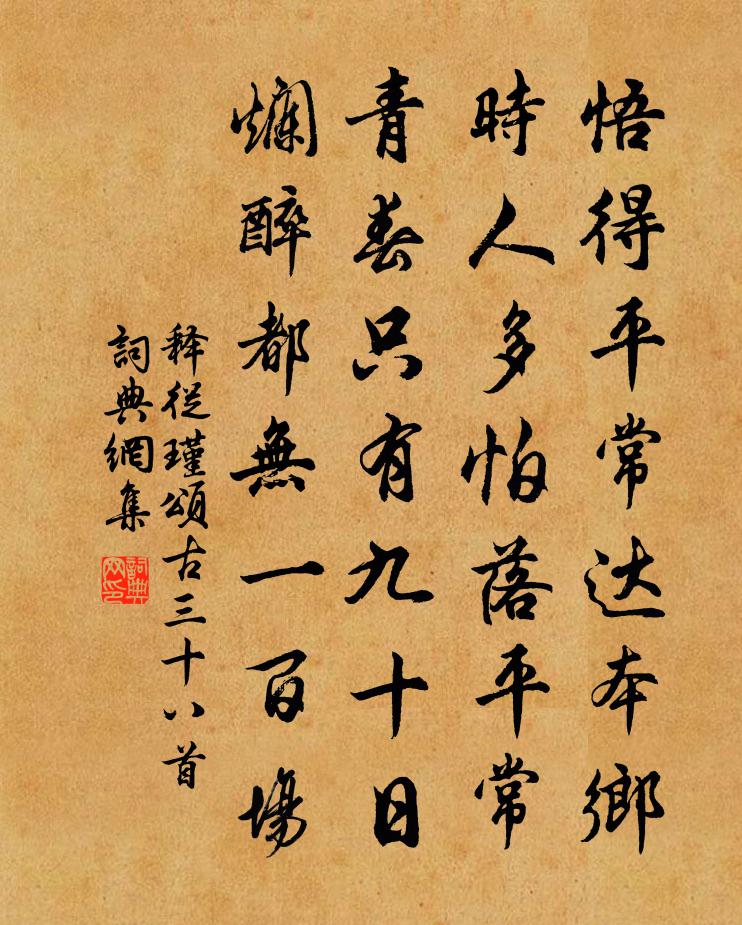 悟得平常达本鄉
時人多怕落平常
青春只有九十日
爛醉都無一百場
释從瑾頌古三十八首
詞典網集
詞典网印